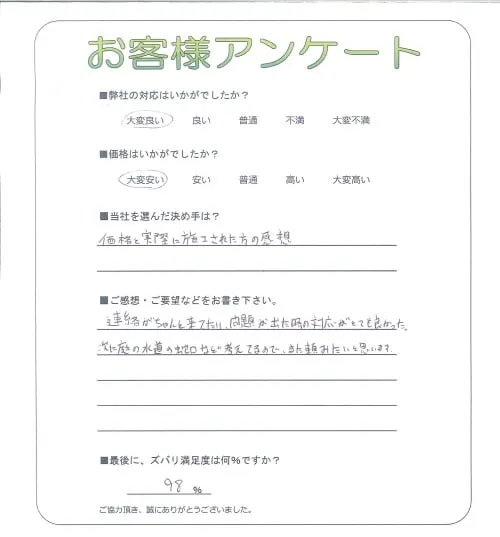 お客様アンケート
■弊社の対応はいかがでしたか？
大変良い 良い 普通 不満 大変不満
■価格はいかがでしたか？
大変安い 安い 普通 高い 大変高い
■当社を選んだ決め手は？
価格と実際に施工された方の感想
■ご感想・ご要望などをお書き下さい。
連絡がちゃんと来てたい、問題が出た時の対応がとても良かった。
次に庭の水道の蛇口など考えてるので、また頼みたいと思います
■最後に、ズバリ満足度は何%ですか？
98 %
ご協力頂き、誠にありがとうございました。